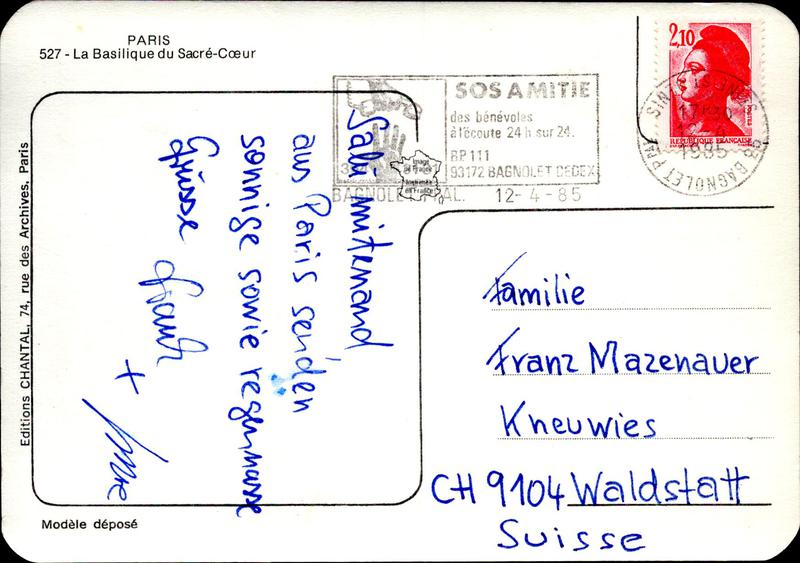 PARIS
527 - La Basilique du Sacré-Cœur
2,10
REPUBLIQUE FRANÇAISE
POSTES
1985
SOS AMITIE
des bénévoles
à l'écoute 24 h sur 24.
BP 111
93172 BAGNOLET CEDEX
12-4-85
Image
de France
Imprimée
en France
Salü mitenand
aus Paris senden
sonnige sowie regennasse
Grüsse
+
Familie
Franz Mazenauer
Kneuwies
CH 9104 Waldstatt
Suisse
Editions CHANTAL, 74, rue des Archives, Paris
Modèle déposé